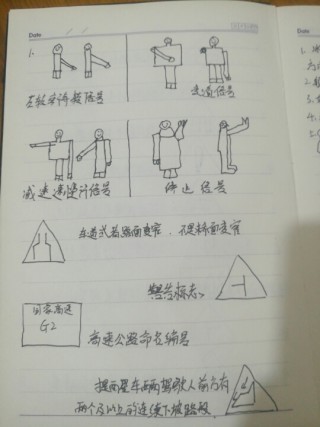 Date
1.
左转弯待转信号
变道信号
减速慢行信号
停止信号
车道或者路面变窄，不是桥面变窄
警告标志
国家高速
G2
高速公路命名编号
提醒车辆驾驶人前方有
两个及以上的连续下坡路段